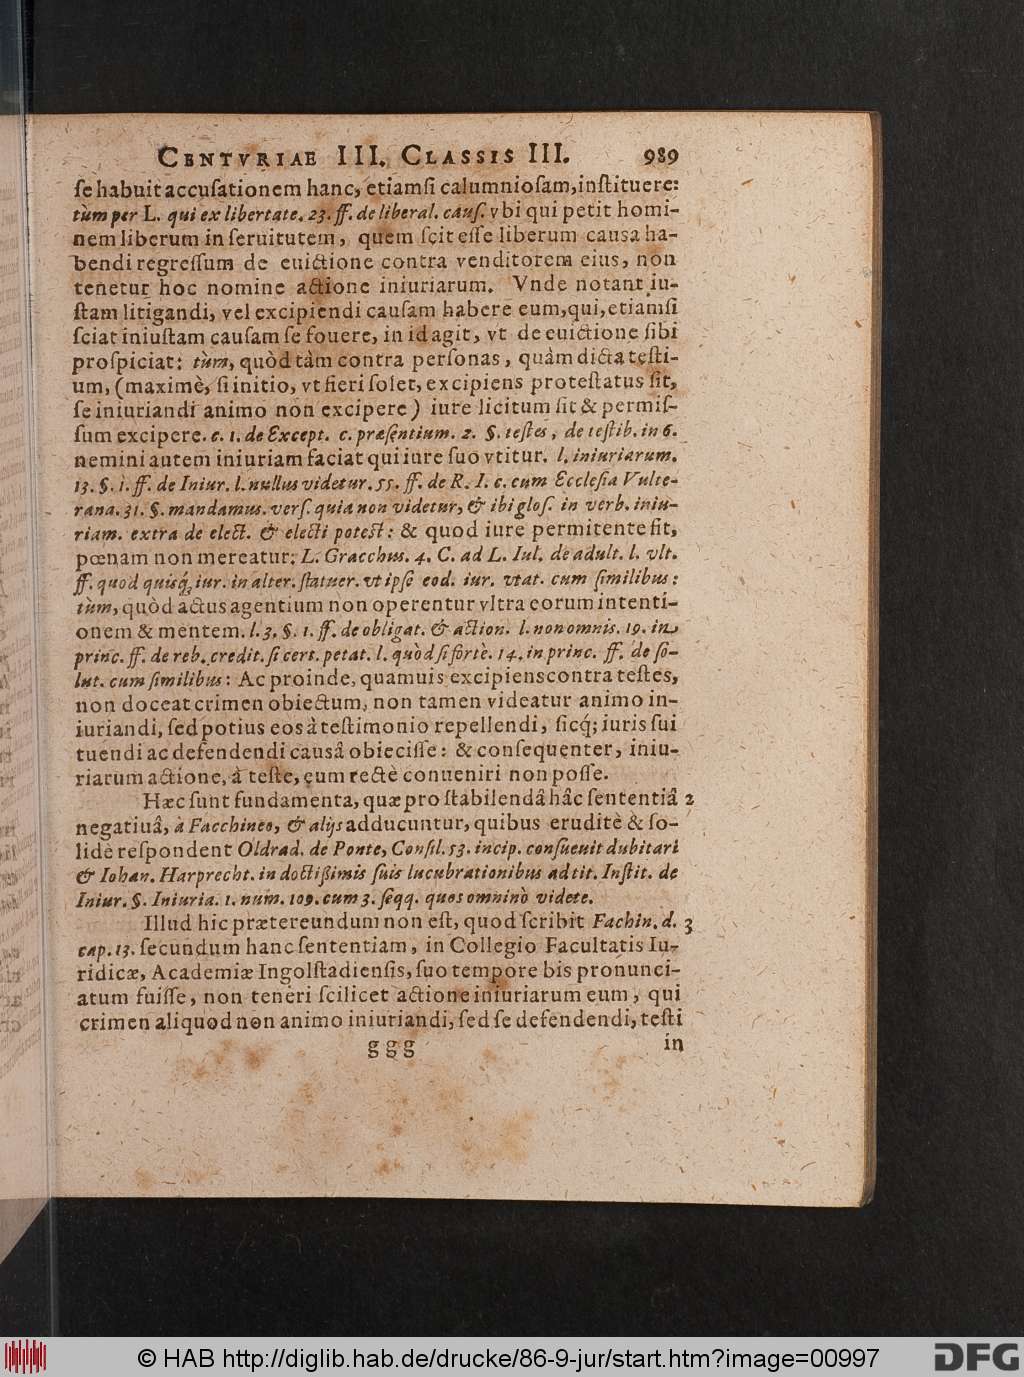 CENTVRIAE III. CLASSIS III. 989
ſe habuit accuſationem hanc, etiamſi calumnioſam, inſtituere:
tùm per L. qui ex libertate. 23. ff. de liberal. cauſ. vbi qui petit homi-
nem liberum in ſeruitutem, quem ſcit eſſe liberum causa ha-
bendi regreſſum de euictione contra venditorem eius, non
tenetur hoc nomine actione iniuriarum. Vnde notant iu-
ſtam litigandi, vel excipiendi cauſam habere eum, qui, etiamſi
ſciat iniuſtam cauſam ſe fouere, in id agit, vt de euictione ſibi
proſpiciat: tùm, quòd tàm contra perſonas, quàm dicta teſti-
um, (maximè, ſi initio, vt fieri ſolet, excipiens proteſtatus ſit,
ſe iniuriandi animo non excipere) iure licitum ſit & permiſ-
ſum excipere. c. 1. de Except. c. præſentium. 2. §. teſtes, de teſtib. in 6.
nemini autem iniuriam faciat qui iure ſuo vtitur. l. iniuriarum.
13. §. 1. ff. de Iniur. l. nullus videtur. 55. ff. de R. I. c. cum Eccleſia Vulte-
rana. 31. §. mandamus. verſ. quia non videtur, & ibi gloſ. in verb. iniu-
riam. extra de elect. & electi poteſt: & quod iure permitente fit,
pœnam non mereatur: L. Gracchus. 4. C. ad L. Iul. de adult. l. vlt.
ff. quod quisq; iur. in alter. ſtatuer. vt ipſe eod. iur. vtat. cum ſimilibus:
tùm, quòd actus agentium non operentur vltra eorum intenti-
onem & mentem. l. 3. §. 1. ff. de obligat. & action. l. non omnis. 19. in
princ. ff. de reb. credit. ſi cert. petat. l. quòd ſi fortè. 14. in princ. ff. de ſo-
lut. cum ſimilibus: Ac proinde, quamuis excipiens contra teſtes,
non doceat crimen obiectum, non tamen videatur animo in-
iuriandi, ſed potius eos à teſtimonio repellendi, ſicq; iuris ſui
tuendi ac defendendi causâ obieciſſe: & conſequenter, iniu-
riarum actione, à teſte, cum rectè conueniri non poſſe.
Hæc ſunt fundamenta, quæ pro ſtabilendâ hâc ſententiâ 2
negatiuâ, à Facchineo, & alijs adducuntur, quibus eruditè & ſo-
lidè reſpondent Oldrad. de Ponte, Conſil. 53. incip. conſueuit dubitari
& Iohan. Harprecht. in doctißimis ſuis lucubrationibus ad tit. Inſtit. de
Iniur. §. Iniuria. 1. num. 109. cum 3. ſeqq. quos omninò videte.
Illud hic prætereundum non eſt, quod ſcribit Fachin. d. 3
cap. 13. ſecundum hanc ſententiam, in Collegio Facultatis Iu-
ridicæ, Academiæ Ingolſtadienſis, ſuo tempore bis pronunci-
atum fuiſſe, non teneri ſcilicet actione iniuriarum eum, qui
crimen aliquod non animo iniuriandi, ſed ſe defendendi, teſti
ggg in
© HAB http://diglib.hab.de/drucke/86-9-jur/start.htm?image=00997
DFG